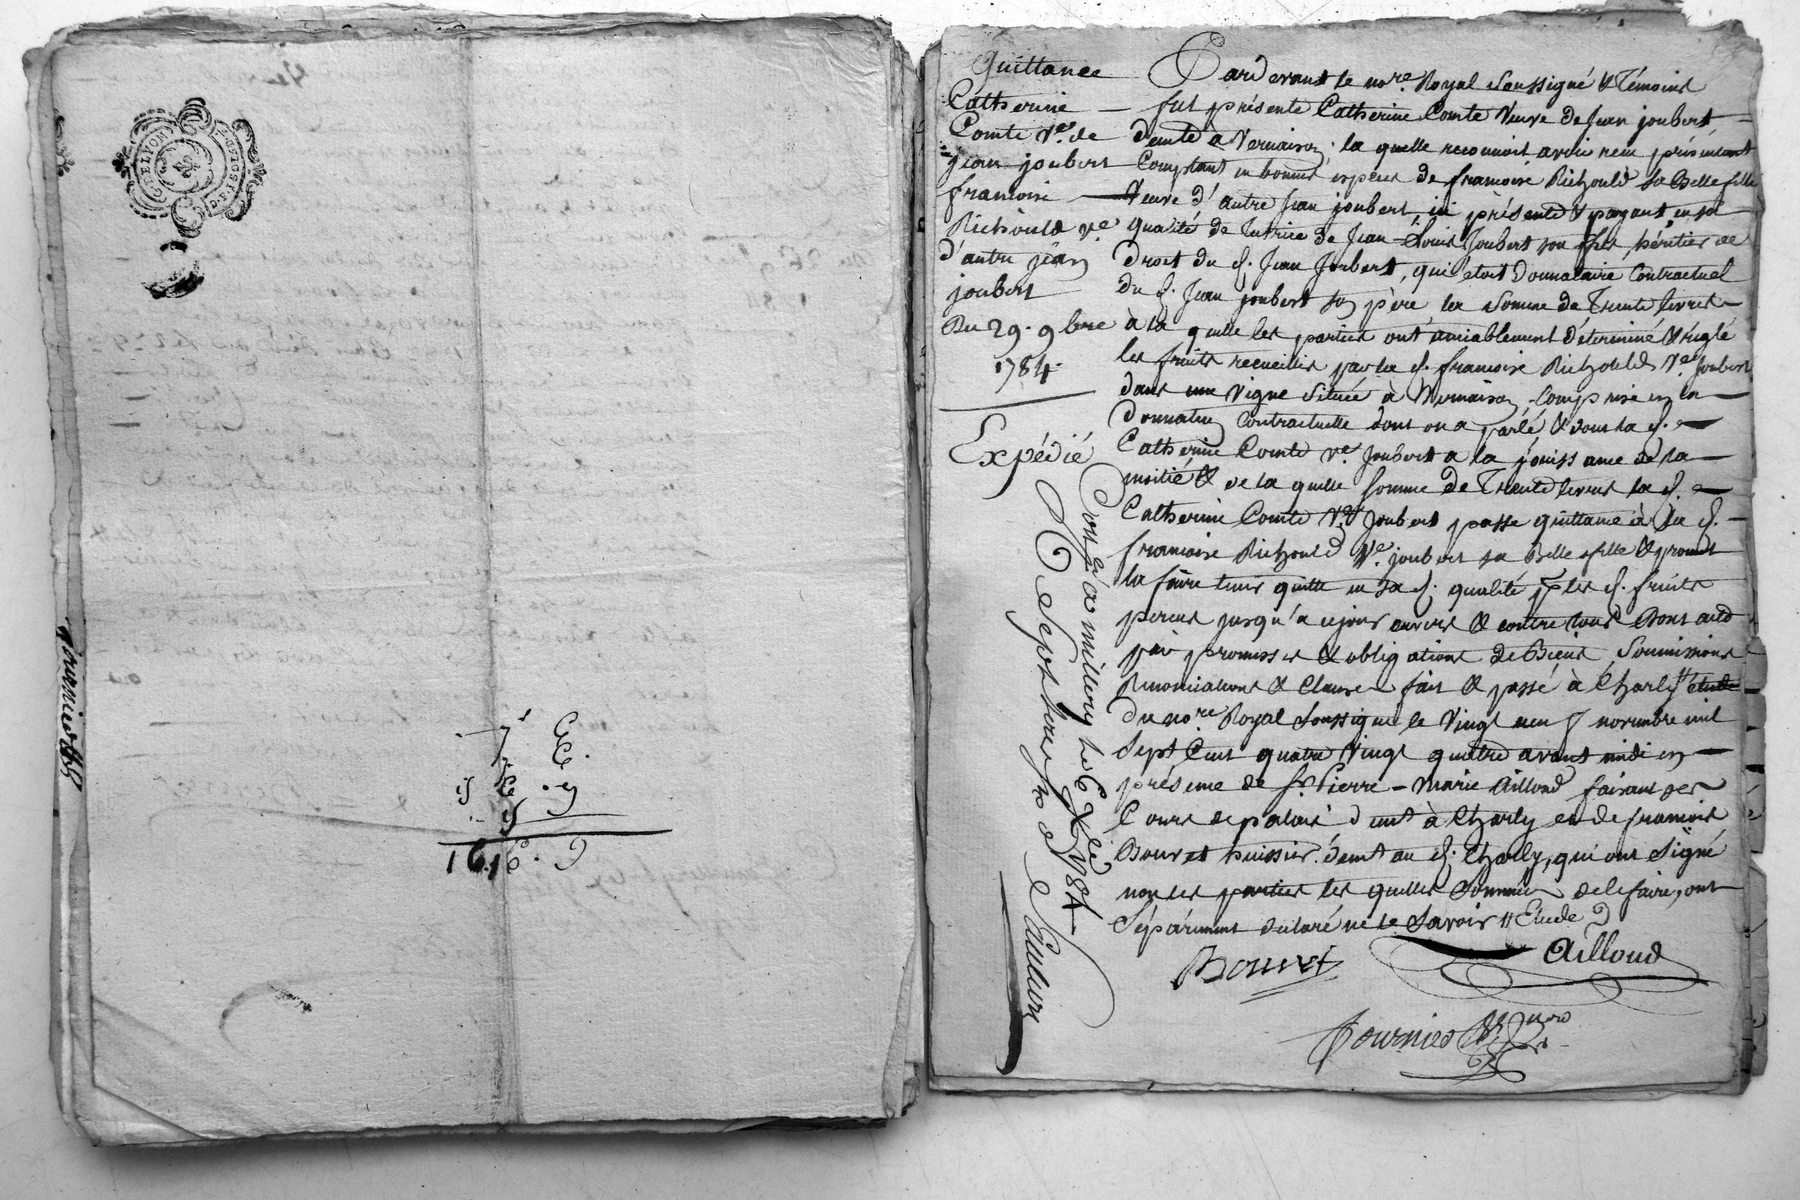 G. DE LYON
7 6
16.16.9
Quittance
Catherine
Comte Ve. de
jean joubert
francoise
Richould ve
d'autre jean
joubert
Du 29. 9bre
1784.
Expédié
Pardevant le nore. Royal Soussigné & Témoins
fut présente Catherine Comte Veuve de Jean joubert
demte à Vernaison. la quelle reconnoit avoir recu présentement
Comptant en bonnes especes de francoise Richould sa Belle fille
Veuve d'autre Jean joubert ici présente & payant en sa
qualité de Tutrice de Jean-Louis Joubert son fils, héritier de
Droit du d. Jean Joubert, qui etoit Donnataire Contractuel
du d. Jean joubert son père, la Somme de Trente livres
à la quelle les parties ont amiablement déterminé & réglé
les fruits recueillis par la d. francoise Richould Ve Joubert
dans une Vigne Située à Vernaison, Comprise en la
Donnation Contractuelle dont on a parlé & dont la d.
Catherine Comte ve. Joubert a la jouissance de la
moitié & de la quelle Somme de Trente livres la d.
Catherine Comte Ve. Joubert passe quittance à la d.
francoise Richould Ve. joubert sa Belle fille & promet
la faire tenir quitte en sa d. qualité pr les d. fruits
percus jusqu'a ce jour envers & contre tous Dont acte
par promesses & obligations de Biens, Soumissions
Renonciations & Clauses fait & passé à Charly // étude
du nore Royal Soussigné le Vingt neuf novembre mil
Sept Cent quatre Vingt quatre avant midi en
présence de Sr. Pierre-Marie Ailloud faisant ses
Cours de palais demt à Charly et de francois
Bouvet huissier. demt au d. Charly, qui ont Signé
non les parties les quelles Sommées de le faire, ont
Séparément déclaré ne le Savoir // Etude
Bouvet
Ailloud
Fournier
Conlé a millery le 6 Xbre 1784
R Sept sols
fournier